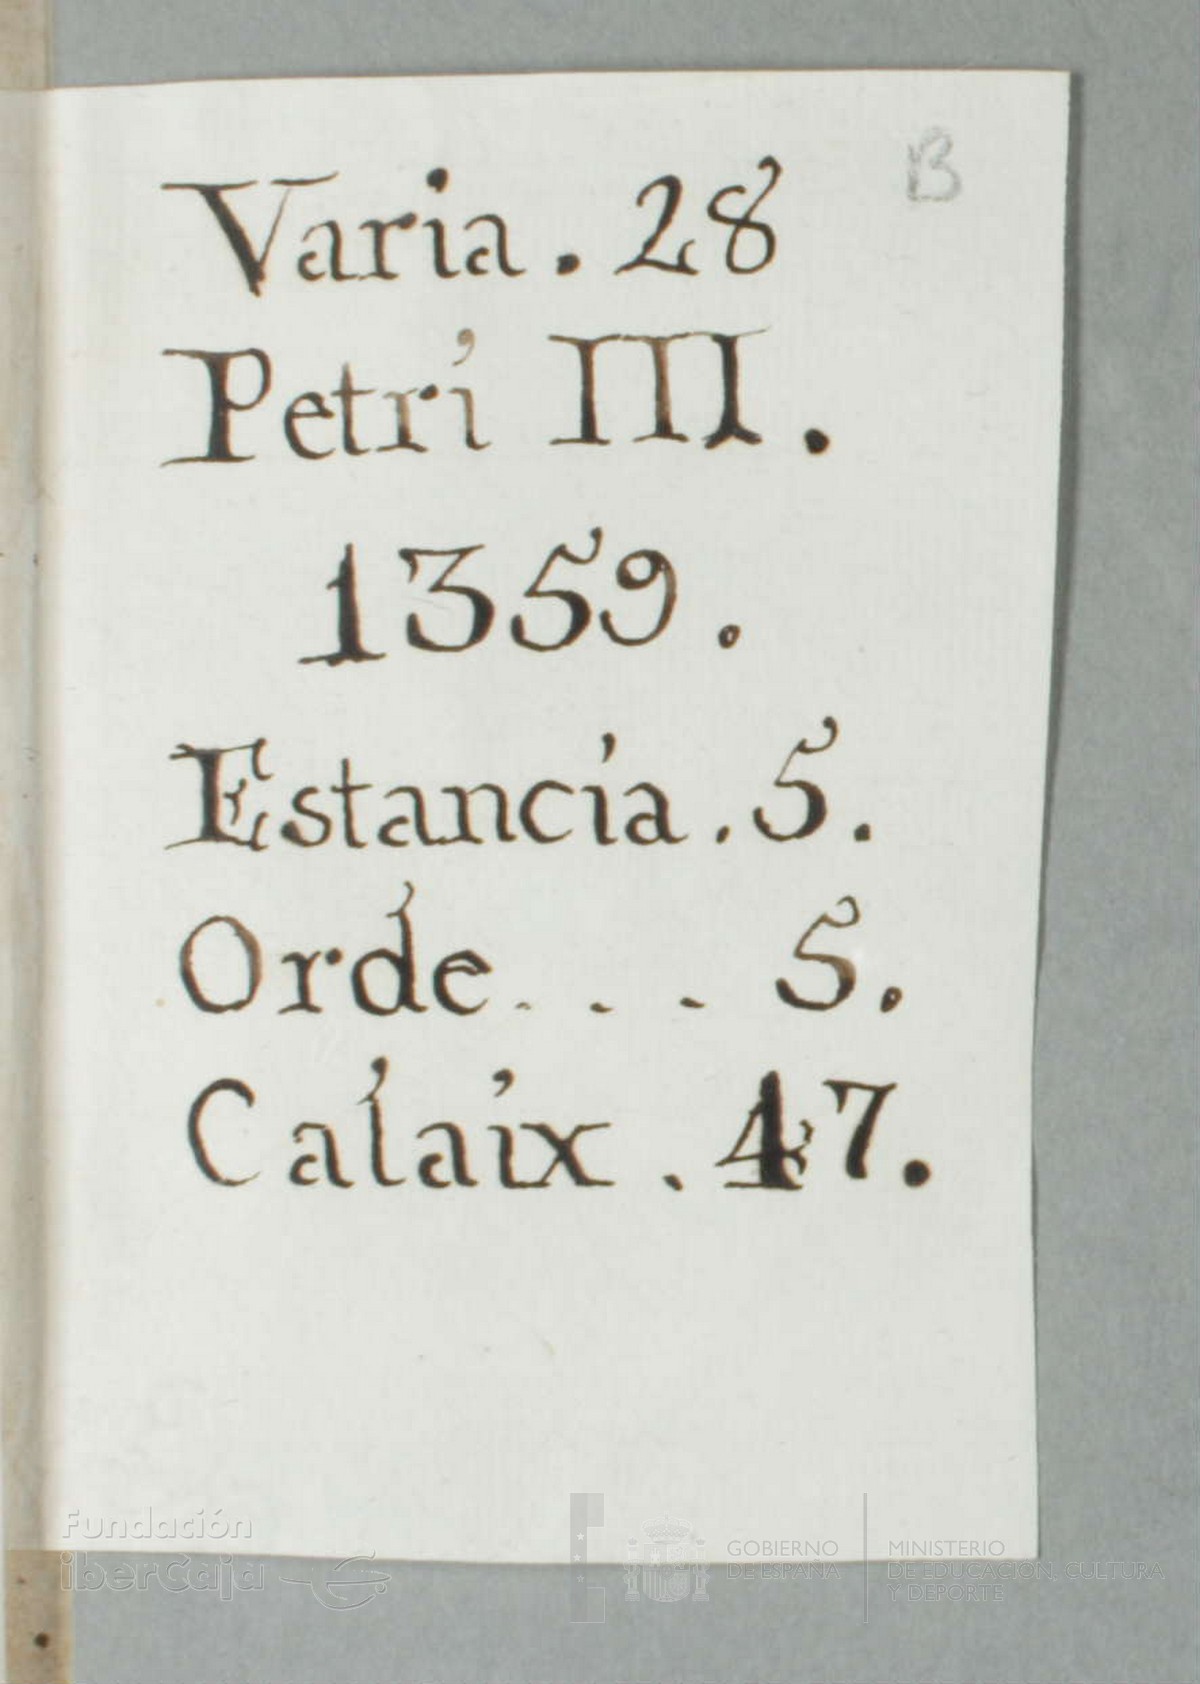 B
Varia. 28
Petri III.
1359.
Estancia. 5.
Orde... 5.
Calaix. 47.
Fundación
iberCaja
GOBIERNO
DE ESPAÑA
MINISTERIO
DE EDUCACIÓN, CULTURA
Y DEPORTE